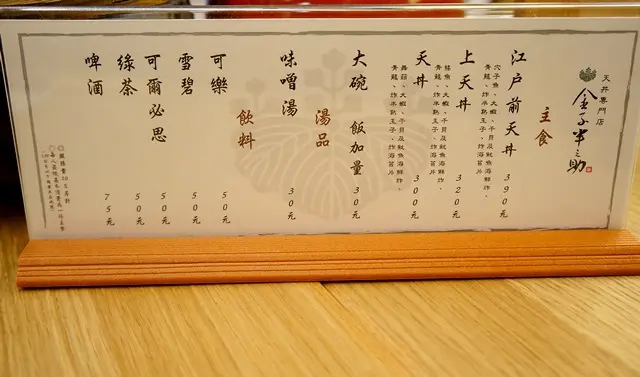 天丼專門店
金子半之助
主食
江戶前天丼 390元
穴子魚、大蝦、干貝及魷魚海鮮炸、
青龍、炸半熟玉子、炸海苔片
上天丼 320元
鱚魚、大蝦、干貝及魷魚海鮮炸、
青龍、炸半熟玉子、炸海苔片
天丼 300元
舞菇、大蝦、干貝及魷魚海鮮炸、
青龍、炸半熟玉子、炸海苔片
大碗 飯加量 30元
湯品
味噌湯 30元
飲料
可樂 50元
雪碧 50元
可爾必思 50元
綠茶 50元
啤酒 75元